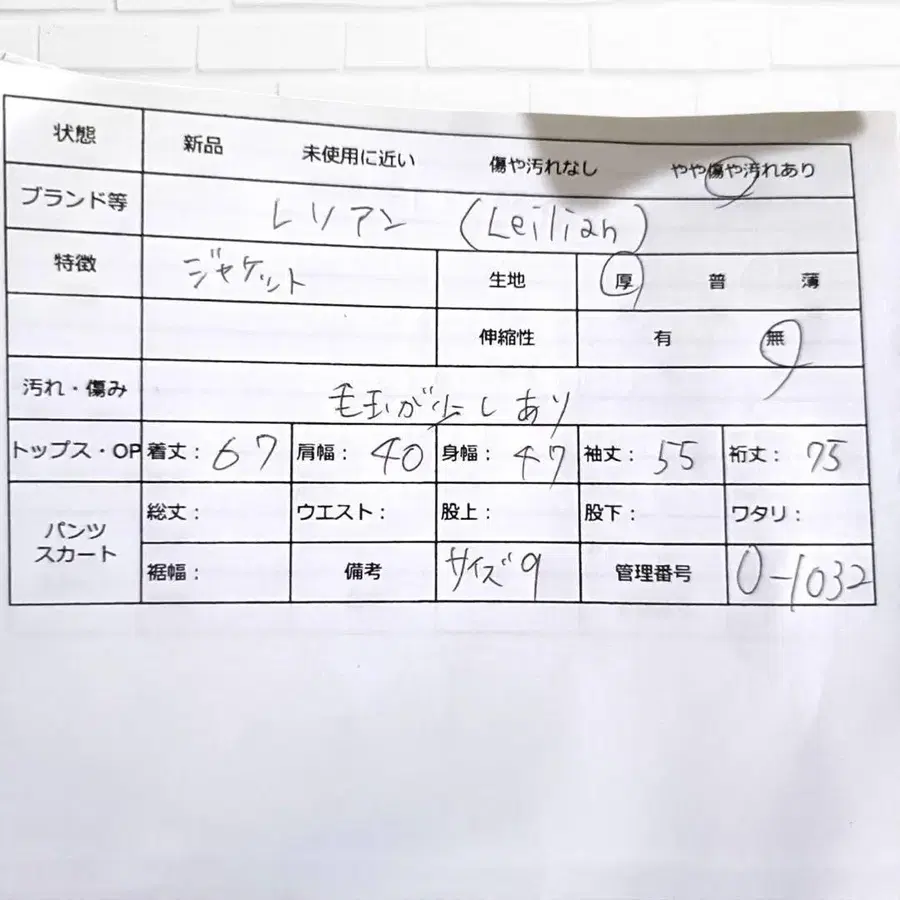 状態 新品 未使用に近い 傷や汚れなし やや傷や汚れあり
ブランド等 レリアン (Leilian)
特徴 ジャケット 生地 厚 普 薄
伸縮性 有 無
汚れ・傷み 毛玉が少しあり
トップス・OP 着丈： 67 肩幅： 40 身幅： 47 袖丈： 55 裄丈： 75
パンツ
スカート
総丈： ウエスト： 股上： 股下： ワタリ：
裾幅： 備考 サイズ9 管理番号 O-1032